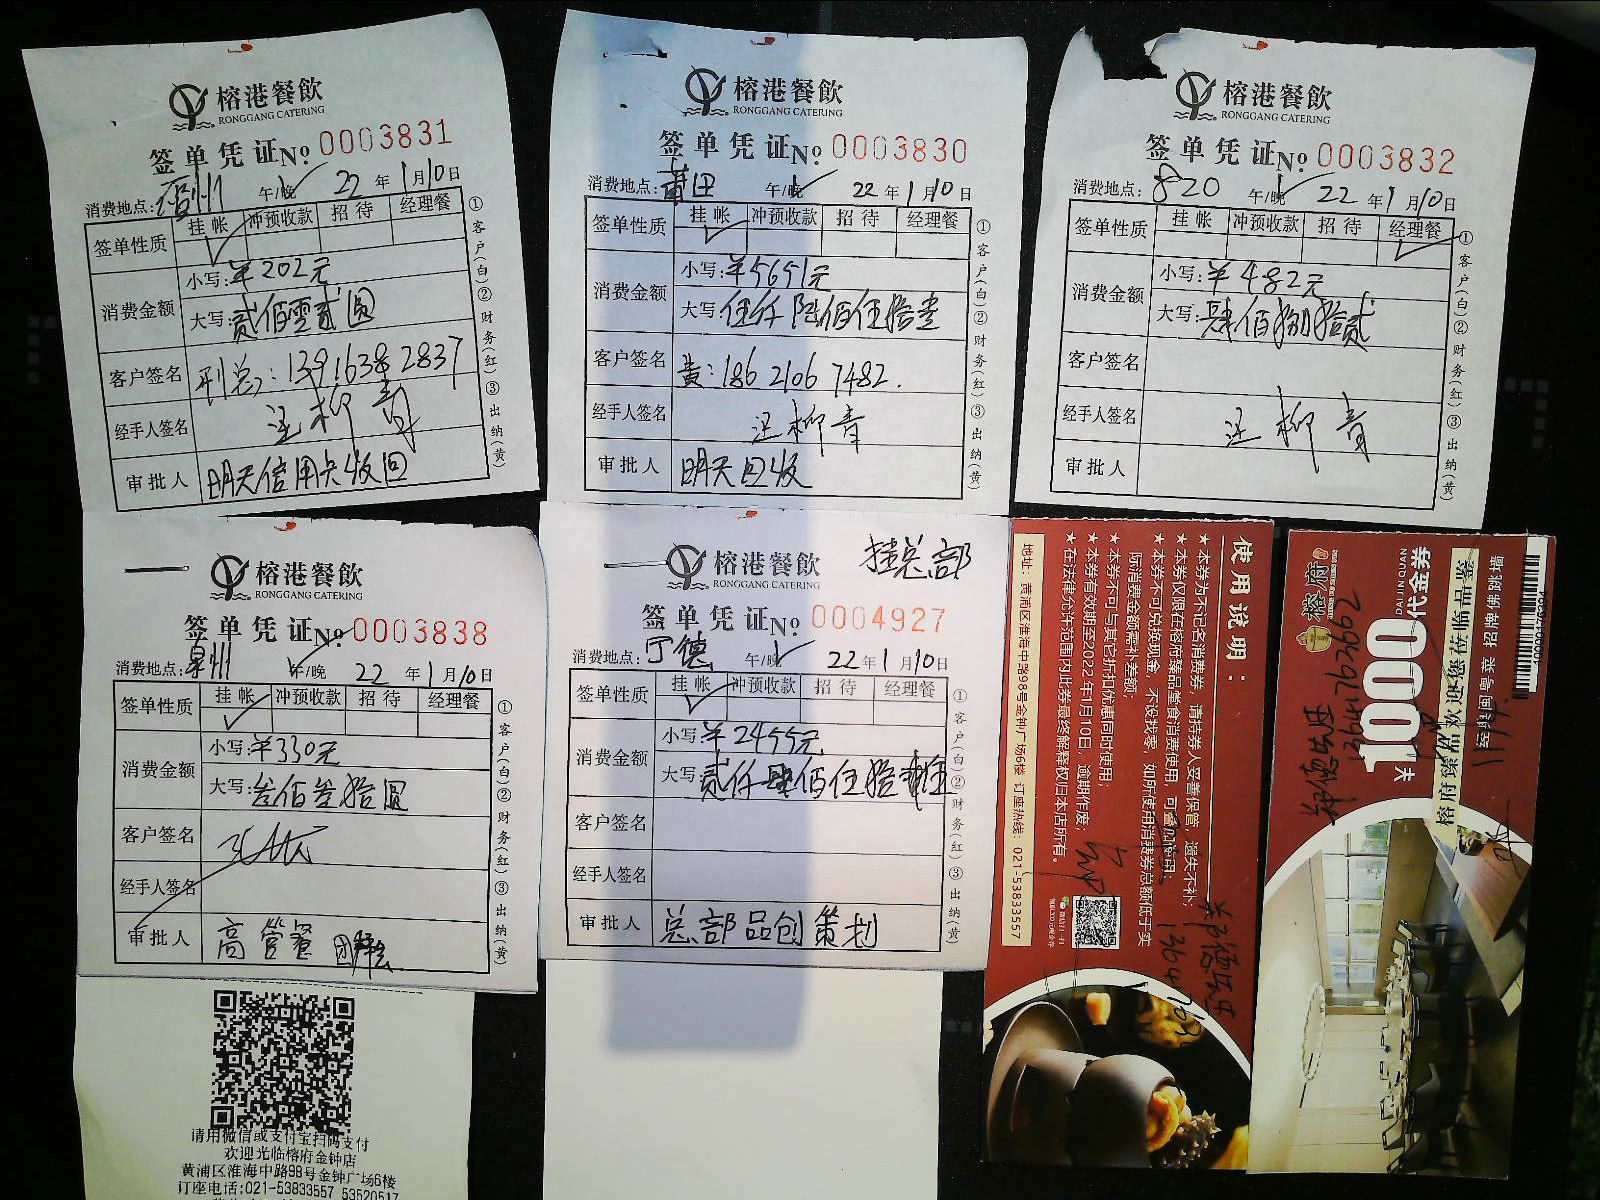 榕港餐飲
RONGGANG CATERING
签单凭证 No. 0003831
消费地点:福州 午/晚 22年1月10日
签单性质 挂帐 冲预收款 招待 经理餐
消费金额 小写:¥202元
大写:贰佰零贰圆
客户签名 刘总:13916382837
经手人签名 汪柳青
审批人 明天信用卡收回
①客户(白)②财务(红)③出纳(黄)
榕港餐飲
RONGGANG CATERING
签单凭证 No. 0003830
消费地点:莆田 午/晚 22年1月10日
签单性质 挂帐 冲预收款 招待 经理餐
消费金额 小写:¥5651元
大写:伍仟陆佰伍拾壹
客户签名 黄:18621067482.
经手人签名 汪柳青
审批人 明天回收
①客户(白)②财务(红)③出纳(黄)
榕港餐飲
RONGGANG CATERING
签单凭证 No. 0003832
消费地点:820 午/晚 22年1月10日
签单性质 挂帐 冲预收款 招待 经理餐
消费金额 小写:¥482元
大写:肆佰捌拾贰
客户签名
经手人签名 汪柳青
审批人
①客户(白)②财务(红)③出纳(黄)
榕港餐飲
RONGGANG CATERING
签单凭证 No. 0003838
消费地点:泉州 午/晚 22年1月10日
签单性质 挂帐 冲预收款 招待 经理餐
消费金额 小写:¥330元
大写:叁佰叁拾圆
客户签名
经手人签名
审批人 高管餐
①客户(白)②财务(红)③出纳(黄)
请用微信或支付宝扫码支付
欢迎光临榕府金钟店
黄浦区淮海中路98号金钟广场6楼
订座电话:021-53833557 53520517
挂总部
榕港餐飲
RONGGANG CATERING
签单凭证 No. 0004927
消费地点:宁德 午/晚 22年1月10日
签单性质 挂帐 冲预收款 招待 经理餐
消费金额 小写:¥2455元
大写:贰仟肆佰伍拾伍
客户签名
经手人签名
审批人 总部品创策划
①客户(白)②财务(红)③出纳(黄)
使用说明:
★本券为不记名消费券,请持券人妥善保管,遗失不补;
★本券仅限在榕府臻品堂食消费使用,可叠加使用;
★本券不可兑换现金,不设找零,如所使用消费券总额低于实
际消费金额需补差额;
★本券不可与其它折扣优惠同时使用;
★本券有效期至2022年1月10日,逾期作废;
★在法律允许范围内此券最终解释权归本店所有。
地址:黄浦区淮海中路98号金钟广场6楼 订座热线:021-53833557
榕府
1000元
代金券
DAIJINQUAN
榕府臻品欢迎您莅临品鉴
经典闽粤菜 招牌佛跳墙